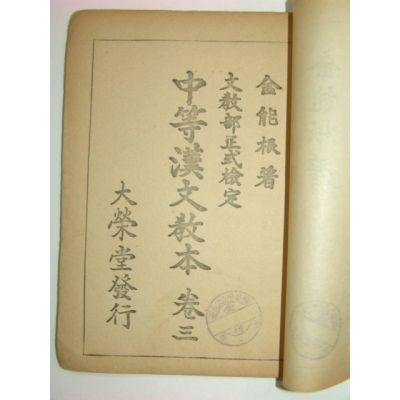 金能根著
文教部正式檢定
中等漢文教本 卷三
大榮堂發行